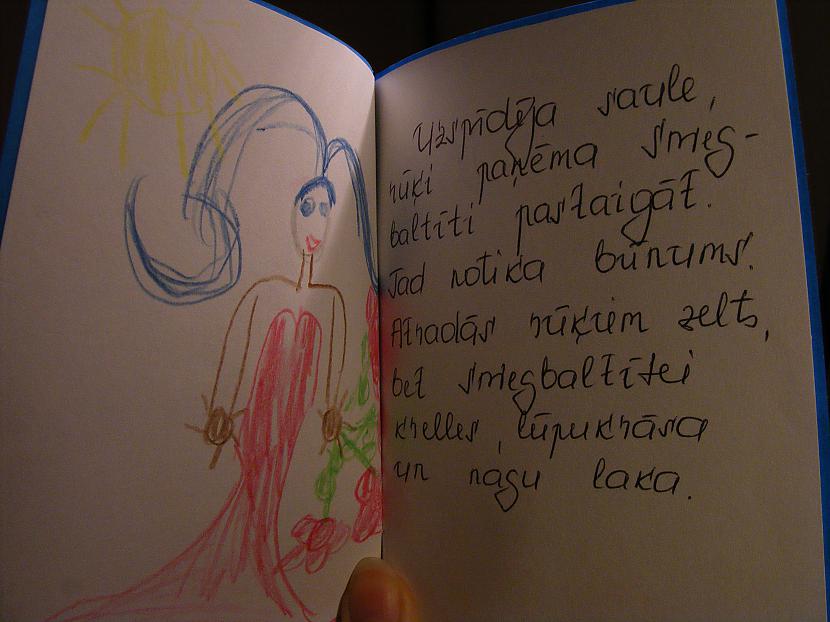 Uzspīdēja saule,
rūķi paņēma Snieg-
baltīti pastaigāt.
Tad notika brīnums!
Atradās rūķiem zelts,
bet Sniegbaltītei
krelles, lūpukrāsa
un nagu laka.